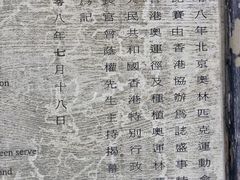 八年北京奧林匹克運動會
比賽由香港協辦為誌盛事
香港奧運徑及種植奧運林
人民共和國香港特別行政
長官曾蔭權先生主持揭幕
為記
零八年七月十八日
een serve
and